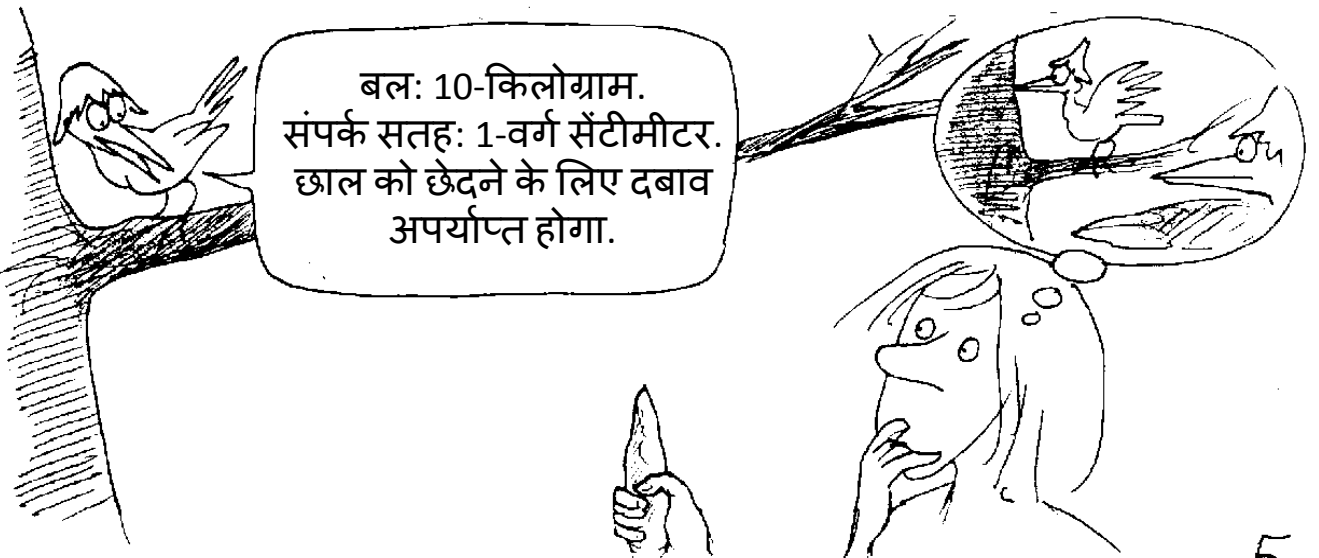 बल: 10-किलोग्राम.
संपर्क सतह: 1-वर्ग सेंटीमीटर.
छाल को छेदने के लिए दबाव
अपर्याप्त होगा.
5